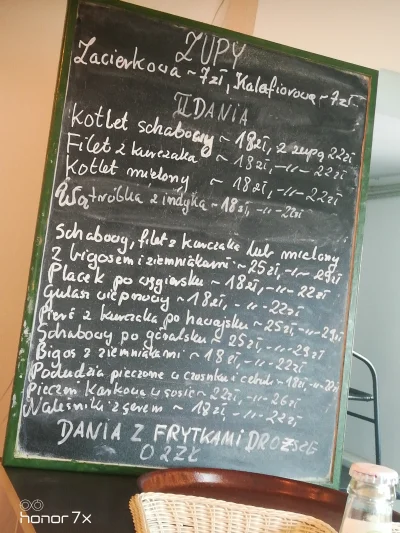 ZUPY
Zacierkowa ~ 7zł, Kalafiorowa ~ 7zł
II DANIA
Kotlet schabowy ~ 18zł, z zupą 22zł
Filet z kurczaka ~ 18zł, -,,- 22zł
Kotlet mielony ~ 18zł, -,,- 22zł
Wątróbka z indyka ~ 18zł, -,,- 22zł
Schabowy, filet z kurczaka lub mielony
z bigosem i ziemniakami ~ 25zł, -,,- 29zł
Placek po węgiersku ~ 18zł, -,,- 22zł
Gulasz wieprzowy ~ 18zł, -,,- 22zł
Pierś z kurczaka po hawajsku ~ 25zł -,,- 29zł
Schabowy po góralsku ~ 25zł, -,,- 29zł
Bigos z ziemniakami ~ 18zł -,,- 22zł
Podudzia pieczone w czosnku i cebuli ~ 18zł, -,,- 22zł
Pieczeń Karkowa w sosie ~ 22zł, -,,- 26zł
Naleśniki z serem ~ 18zł -,,- 22zł
DANIA Z FRYTKAMI DROŻSZE
O 2ZŁ
honor 7x